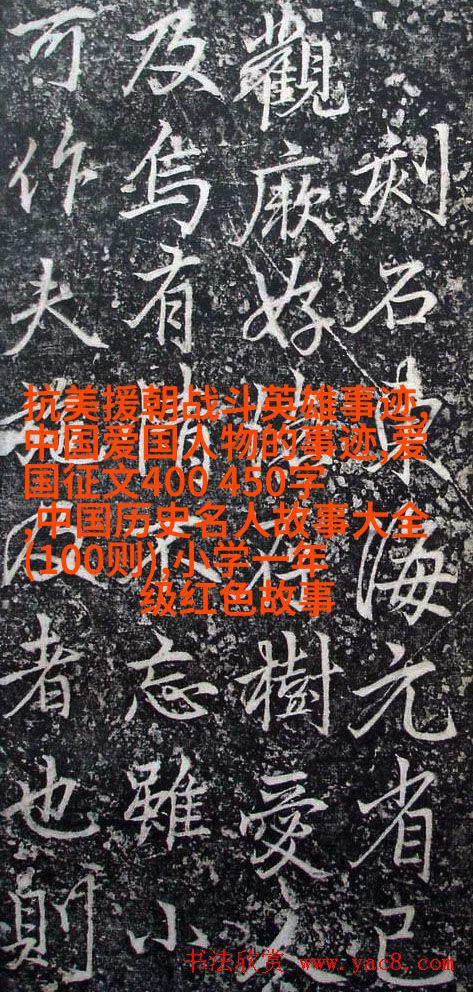 刻石東海元省己
觀厥好樹愛
及焉有情忘雖小
可作夫者也則
抗美援朝战斗英雄事迹,
中国爱国人物的事迹,爱
国征文400 450字
,中国历史名人故事大全
(100则),小学一年
级红色故事
书法欣赏 www.yac8.com